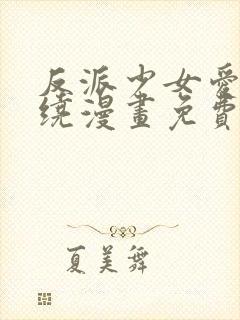 反派少女愛
繞漫畫免費
夏美舞